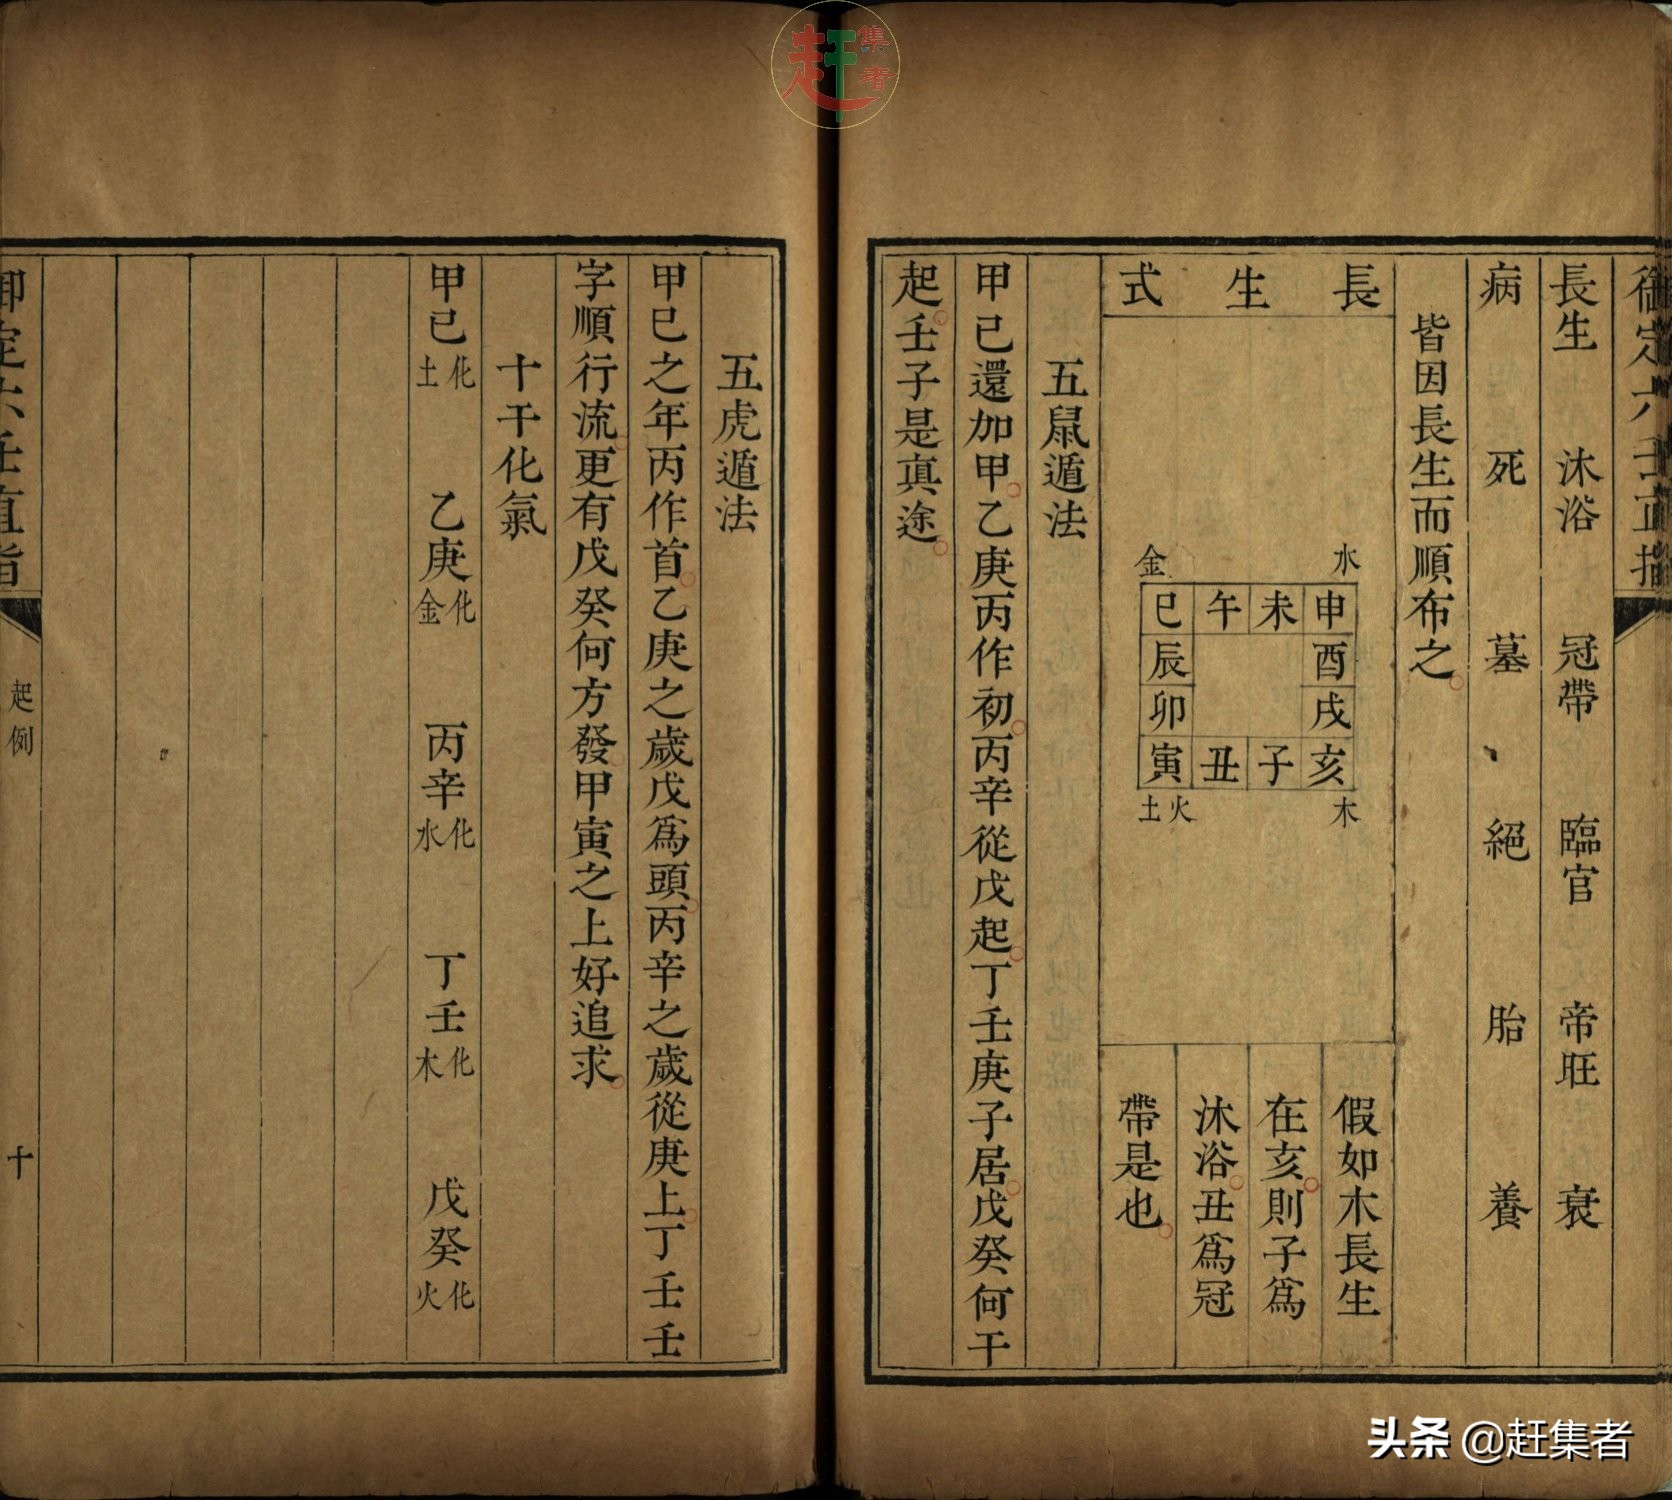 御定六壬直指
長生 沐浴 冠帶 臨官 帝旺 衰
病 死 墓 絕 胎 養
皆因長生而順布之
長生式
水 金
申 未 午 巳
酉 辰
戌 卯
亥 子 丑 寅
木 火土
假如木長生
在亥則子爲
沐浴丑爲冠
帶是也
五鼠遁法
甲己還加甲乙庚丙作初丙辛從戊起丁壬庚子居戊癸何干
起壬子是真途
五虎遁法
甲己之年丙作首乙庚之歲戊爲頭丙辛之歲從庚上丁壬壬
字順行流更有戊癸何方發甲寅之上好追求
十干化氣
甲己化土 乙庚化金 丙辛化水 丁壬化木 戊癸化火
御定六壬直指
起例
十
赶集者
头条 @赶集者